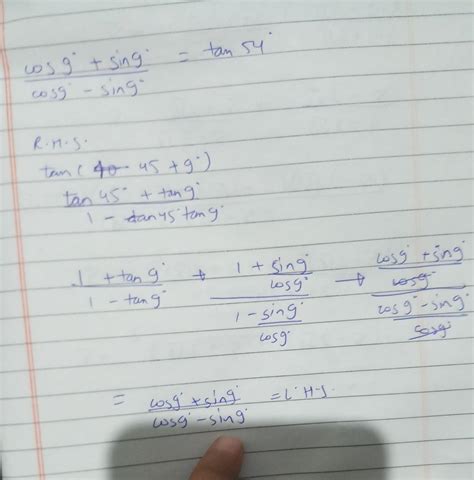 cos9° + sin9° / cos9° - sin9° = tan 54°
R.H.S.
tan( 45 + 9°)
tan 45° + tan9° / 1 - tan45° tan9°
1 + tan9° / 1 - tan9° → 1 + sin9°/cos9° / 1 - sin9°/cos9° → cos9° + sin9°/cos9° / cos9° - sin9°/cos9°
= cos9° + sin9° / cos9° - sin9° = L.H.S.